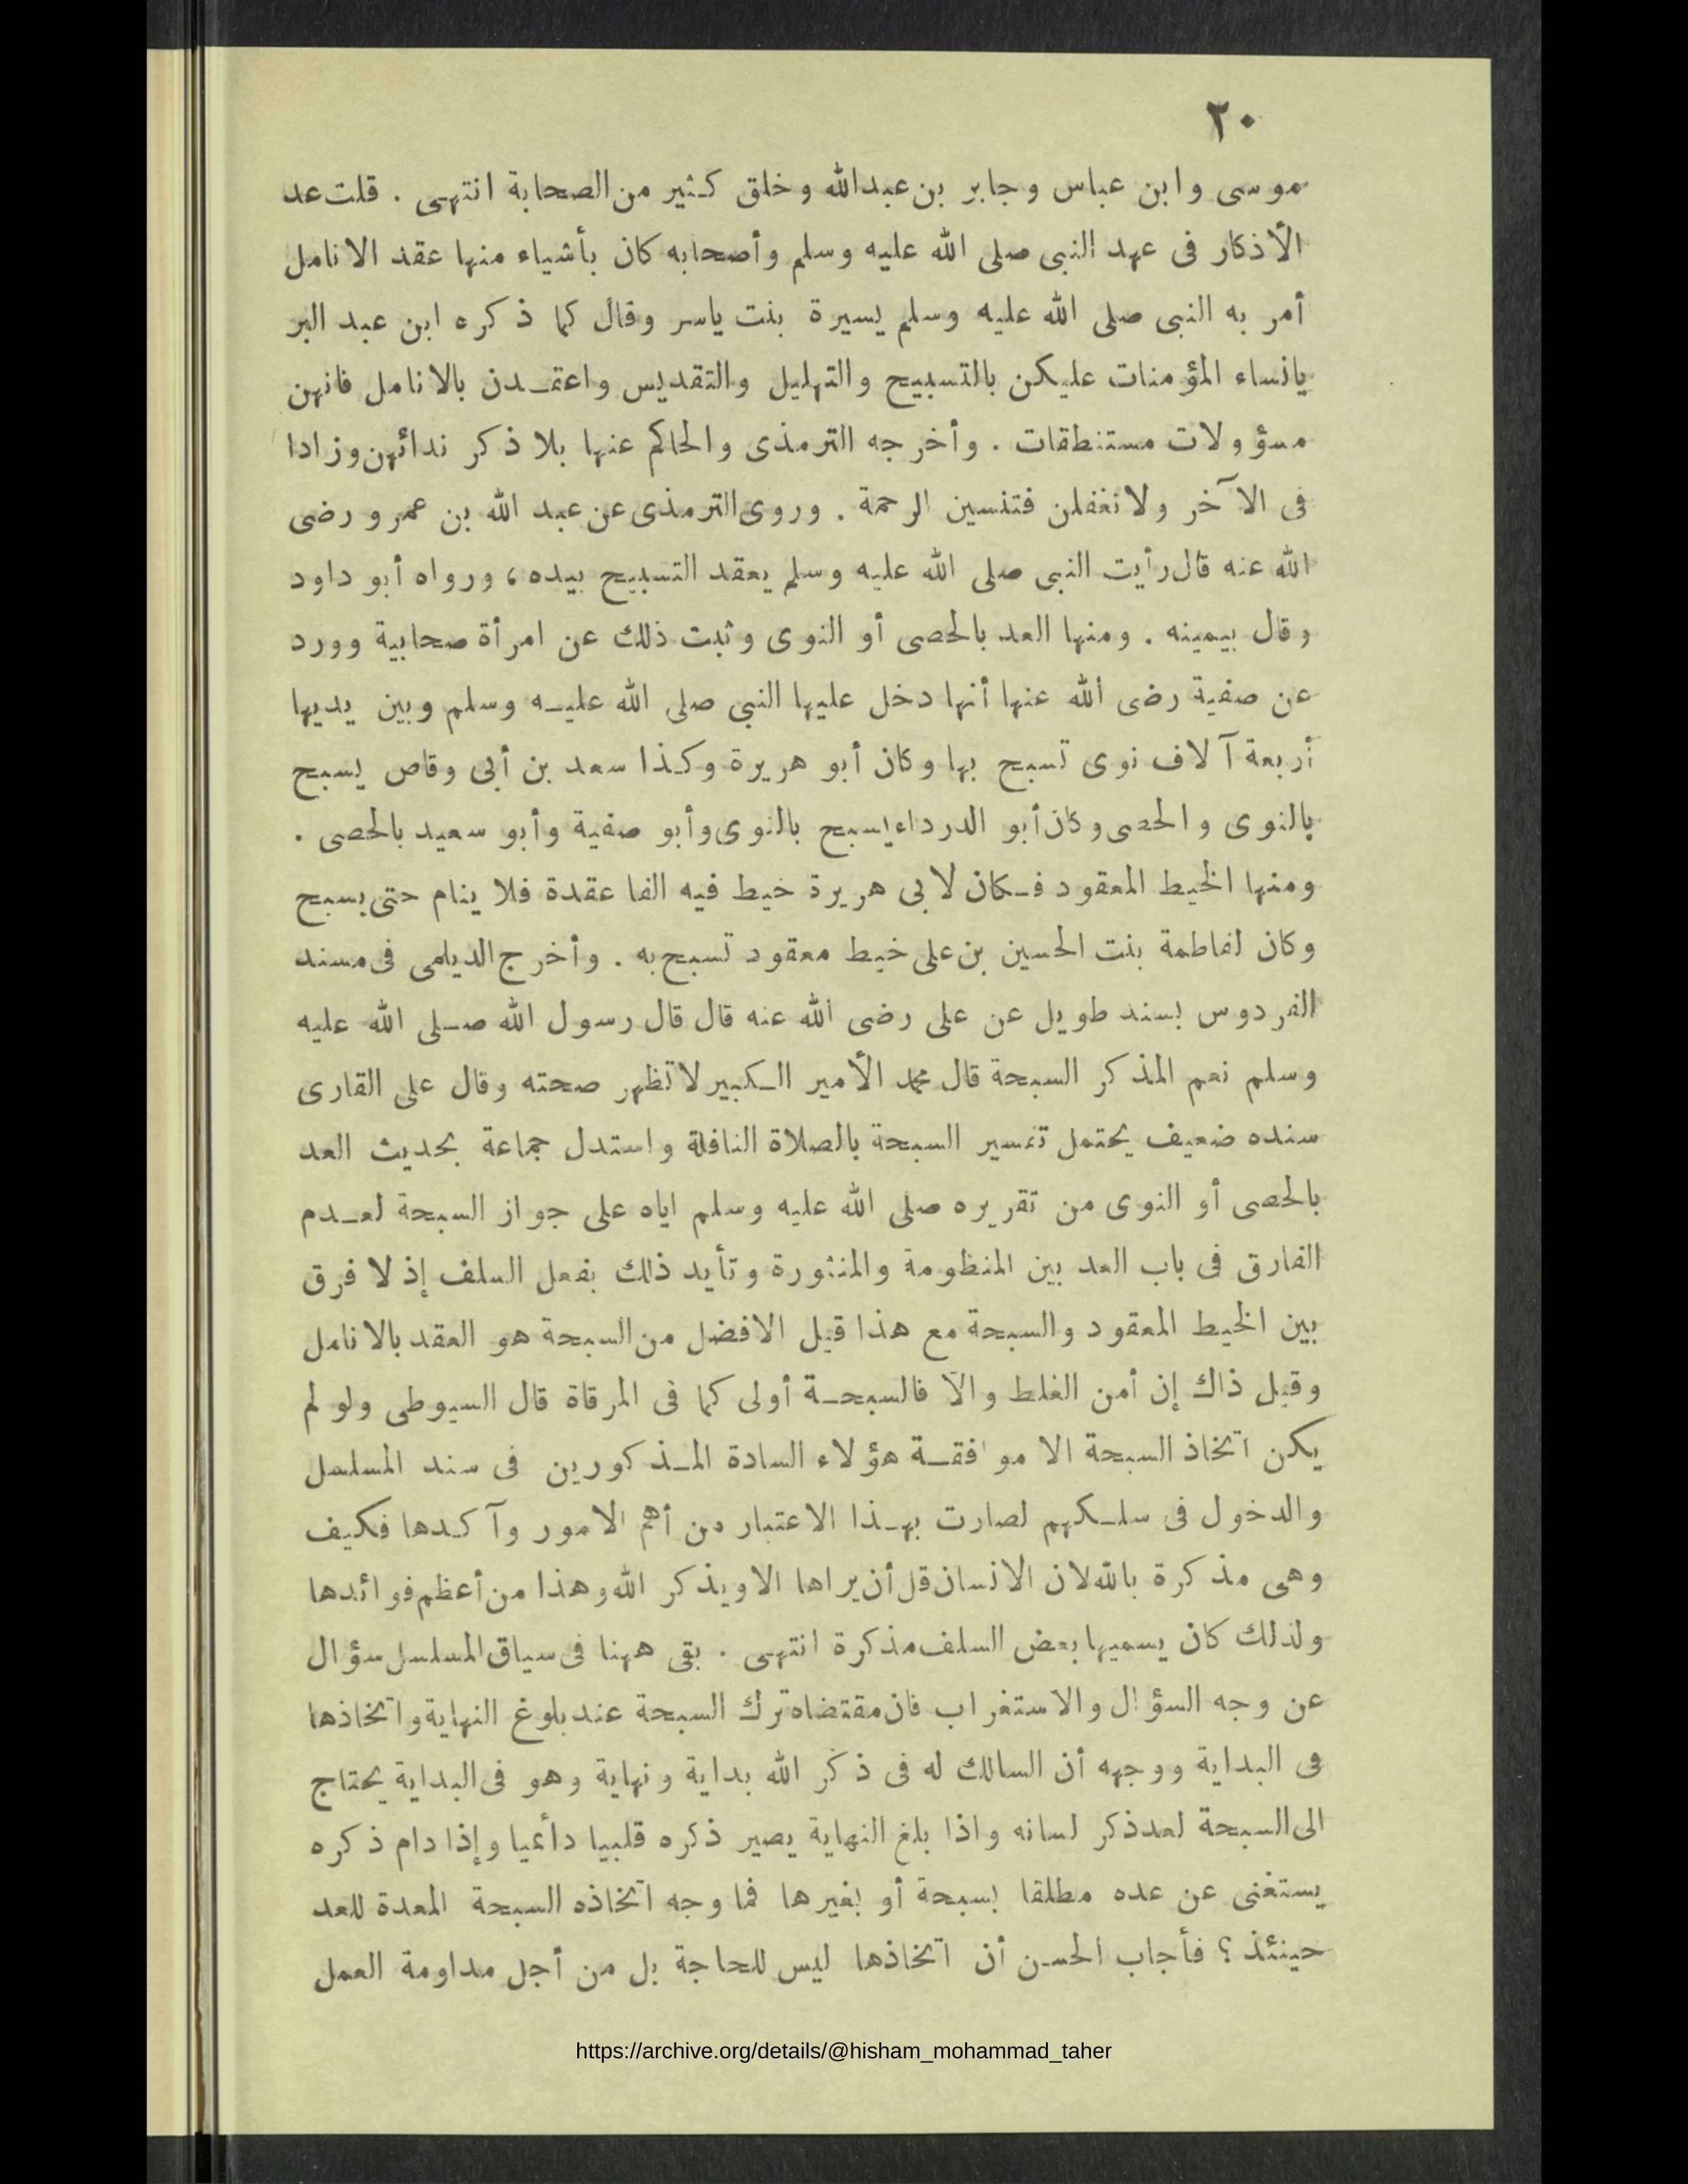 ٢٠
موسى وابن عباس وجابر بن عبدالله وخلق كثير من الصحابة انتهى . قلت عد
الأذكار فى عهد النبى صلى الله عليه وسلم وأصحابه كان بأشياء منها عقد الانامل
أمر به النبى صلى الله عليه وسلم يسيرة بنت ياسر وقال كما ذكره ابن عبد البر
يانساء المؤمنات عليكن بالتسبيح والتهليل والتقديس واعتقدن بالانامل فانهن
مسؤولات مستنطقات . وأخرجه الترمذى والحاكم عنها بلا ذكر ندائهن وزادا
فى الآخر ولا تغفلن فتنسين الرحمة . وروى الترمذى عن عبد الله بن عمرو رضى
الله عنه قال رأيت النبى صلى الله عليه وسلم يعقد التسبيح بيده ، ورواه أبو داود
وقال بيمينه . ومنها العد بالحصى أو النوى وثبت ذلك عن امرأة صحابية وورد
عن صفية رضى الله عنها أنها دخل عليها النبى صلى الله عليه وسلم وبين يديها
أربعة آلاف نوى تسبح بها وكان أبو هريرة وكذا سعد بن أبى وقاص يسبح
بالنوى والحصى وكان أبو الدرداء يسبح بالنوى وأبو صفية وأبو سعيد بالحصى .
ومنها الخيط المعقود فكان لابى هريرة خيط فيه الفا عقدة فلا ينام حتى يسبح
وكان لفاطمة بنت الحسين بن على خيط معقود تسبح به . وأخرج الديلمى فى مسند
الفردوس بسند طويل عن على رضى الله عنه قال قال رسول الله صلى الله عليه
وسلم نعم المذكر السبحة قال محمد الأمير الكبير لا تظهر صحته وقال على القارى
سنده ضعيف يحتمل تفسير السبحة بالصلاة النافلة واستدل جماعة بحديث العد
بالحصى أو النوى من تقريره صلى الله عليه وسلم اياه على جواز السبحة لعدم
الفارق فى باب العد بين المنظومة والمنثورة وتأيد ذلك بفعل السلف إذ لا فرق
بين الخيط المعقود والسبحة مع هذا قيل الافضل من السبحة هو العقد بالانامل
وقيل ذاك إن أمن الغلط والآ فالسبحة أولى كما فى المرقاة قال السيوطى ولو لم
يكن اتخاذ السبحة الا موافقة هؤلاء السادة المذكورين فى سند المسلسل
والدخول فى سلكهم لصارت بهذا الاعتبار من أهم الامور وآكدها فكيف
وهى مذكرة بالله لان الانسان قل أن يراها الا ويذكر الله وهذا من أعظم فوائدها
ولذلك كان يسميها بعض السلف مذكرة انتهى . بقى ههنا فى سياق المسلسل سؤال
عن وجه السؤال والاستغراب فان مقتضاه ترك السبحة عند بلوغ النهاية واتخاذها
فى البداية ووجهه أن السالك له فى ذكر الله بداية ونهاية وهو فى البداية يحتاج
الى السبحة لعد ذكر لسانه واذا بلغ النهاية يصير ذكره قلبيا دائميا وإذا دام ذكره
يستغنى عن عده مطلقا بسبحة أو بغيرها فما وجه اتخاذه السبحة المعدة للعد
حينئذ ؟ فأجاب الحسن أن اتخاذها ليس للحاجة بل من أجل مداومة العمل
https://archive.org/details/@hisham_mohammad_taher